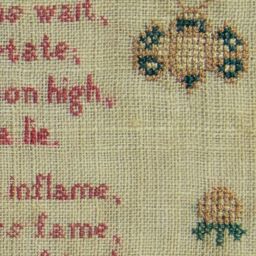 wait,
tate;
on high,
a lie.
inflame,
fame,